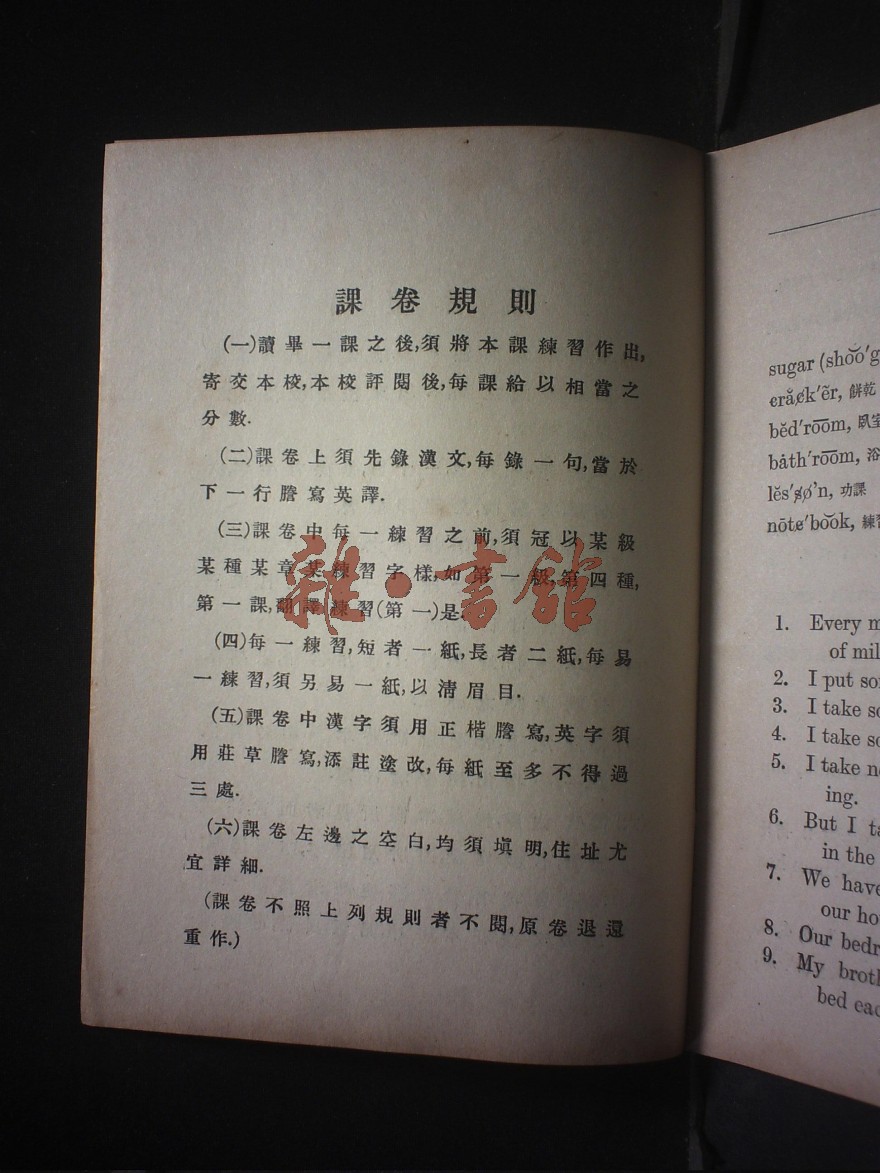 課卷規則
(一)讀畢一課之後,須將本課練習作出,
寄交本校,本校評閱後,每課給以相當之
分數.
(二)課卷上須先錄漢文,每錄一句,當於
下一行謄寫英譯.
(三)課卷中每一練習之前,須冠以某級
某種某章某練習字樣,如第一級,第四種,
第一課,翻譯練習(第一)是.
(四)每一練習,短者一紙,長者二紙,每易
一練習,須另易一紙,以清眉目.
(五)課卷中漢字須用正楷謄寫,英字須
用莊草謄寫,添註塗改,每紙至多不得過
三處.
(六)課卷左邊之空白,均須塡明,住址尤
宜詳細.
(課卷不照上列規則者不閱,原卷退還
重作.)
雜·書館
sugar (shŏŏ′g
crăck′ẽr, 餅乾
bĕd′rōōm, 臥室
bȧth′rōōm, 浴
lĕs′sø′n, 功課
nōte′bŏŏk, 練習
1. Every m
of mil
2. I put so
3. I take so
4. I take so
5. I take n
ing.
6. But I ta
in the
7. We have
our ho
8. Our bedr
9. My broth
bed eac